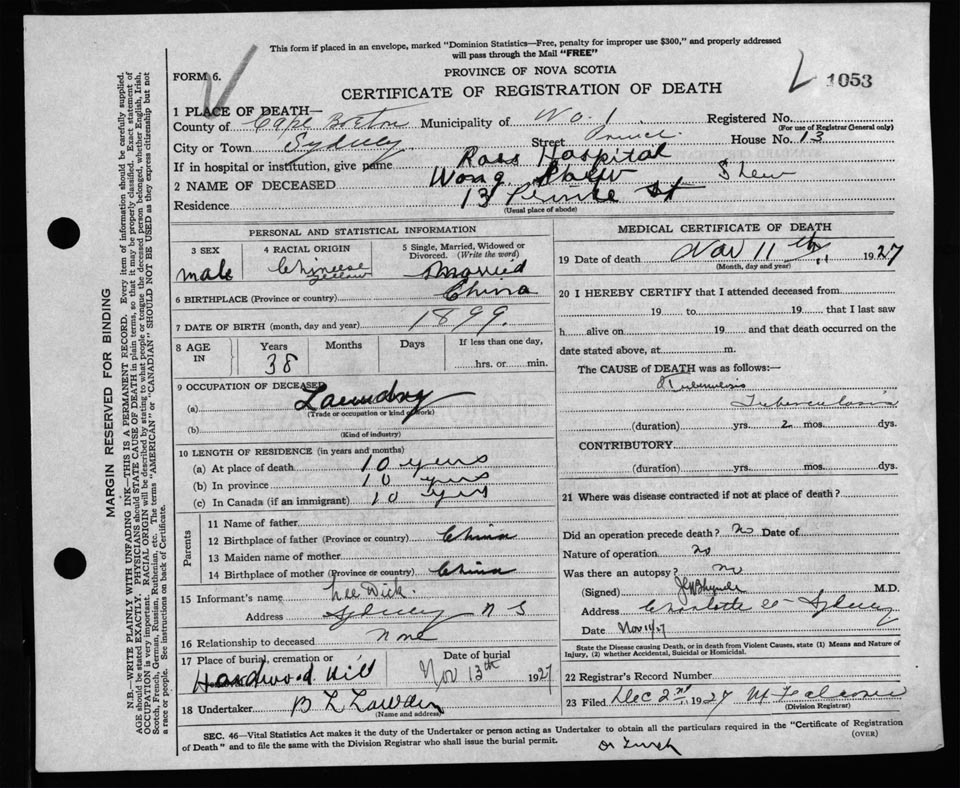 This form if placed in an envelope, marked "Dominion Statistics—Free, penalty for improper use $300," and properly addressed
will pass through the Mail "FREE"
FORM 6.
PROVINCE OF NOVA SCOTIA
1053
CERTIFICATE OF REGISTRATION OF DEATH
1 PLACE OF DEATH—
County of Cape Breton Municipality of No. 1 Registered No.
(For use of Registrar General only)
City or Town Sydney Street House No. 13
If in hospital or institution, give name Ross Hospital
2 NAME OF DECEASED Wong Shew
Residence 13 St
(Usual place of abode)
PERSONAL AND STATISTICAL INFORMATION
3 SEX 4 RACIAL ORIGIN 5 Single, Married, Widowed or Divorced. (Write the word)
male Chinese yellow Married
6 BIRTHPLACE (Province or country) China
7 DATE OF BIRTH (month, day and year) 1899.
8 AGE IN Years Months Days If less than one day,
38 hrs. or min.
9 OCCUPATION OF DECEASED
(a) Laundry
(Trade or occupation or kind of work)
(b)
(Kind of industry)
10 LENGTH OF RESIDENCE (in years and months)
(a) At place of death 10 years
(b) In province 10 years
(c) In Canada (if an immigrant) 10 years
Parents
11 Name of father
12 Birthplace of father (Province or country) China
13 Maiden name of mother
14 Birthplace of mother (Province or country) China
15 Informant's name Lee Dick.
Address Sydney N S
16 Relationship to deceased none
17 Place of burial, cremation or Date of burial
Hardwood Hill Nov 13th 1927
18 Undertaker B L
(Name and address)
MEDICAL CERTIFICATE OF DEATH
19 Date of death Nov 11th 1927
(Month, day and year)
20 I HEREBY CERTIFY that I attended deceased from
19 to 19 that I last saw
h alive on 19 and that death occurred on
date stated above, at m.
The CAUSE OF DEATH was as follows:—
Tuberculosis
(duration) yrs. 2 mos. dys.
CONTRIBUTORY
(duration) yrs. mos. dys.
21 Where was disease contracted if not at place of death?
Did an operation precede death? no Date of
Nature of operation no
Was there an autopsy? no
(Signed) M.D.
Address Charlotte St Sydney
Date Nov 11/27
State the Disease causing Death, or in death from Violent Causes, state (1) Means and Nature of Injury, (2) whether Accidental, Suicidal or Homicidal.
22 Registrar's Record Number
23 Filed Dec 2nd 1927
(Division Registrar)
SEC. 46—Vital Statistics Act makes it the duty of the Undertaker or person acting as Undertaker to obtain all the particulars required in the "Certificate of Registration
of Death" and to file the same with the Division Registrar who shall issue the burial permit.
(OVER)
MARGIN RESERVED FOR BINDING
N.B.—WRITE PLAINLY WITH UNFADING INK—THIS IS A PERMANENT RECORD. Every item of information should be carefully supplied.
AGE should be stated EXACTLY. PHYSICIANS should STATE CAUSE OF DEATH in plain terms, so that it may be properly classified. Exact statement of
OCCUPATION is very important. RACIAL ORIGIN will be described by stating to what people or tongue the deceased person belonged, whether English, Irish,
Scotch, French, German, Russian, Ruthenian, etc. The terms "AMERICAN" or "CANADIAN" SHOULD NOT BE USED as they express citizenship but not
a race or people. See instructions on back of Certificate.